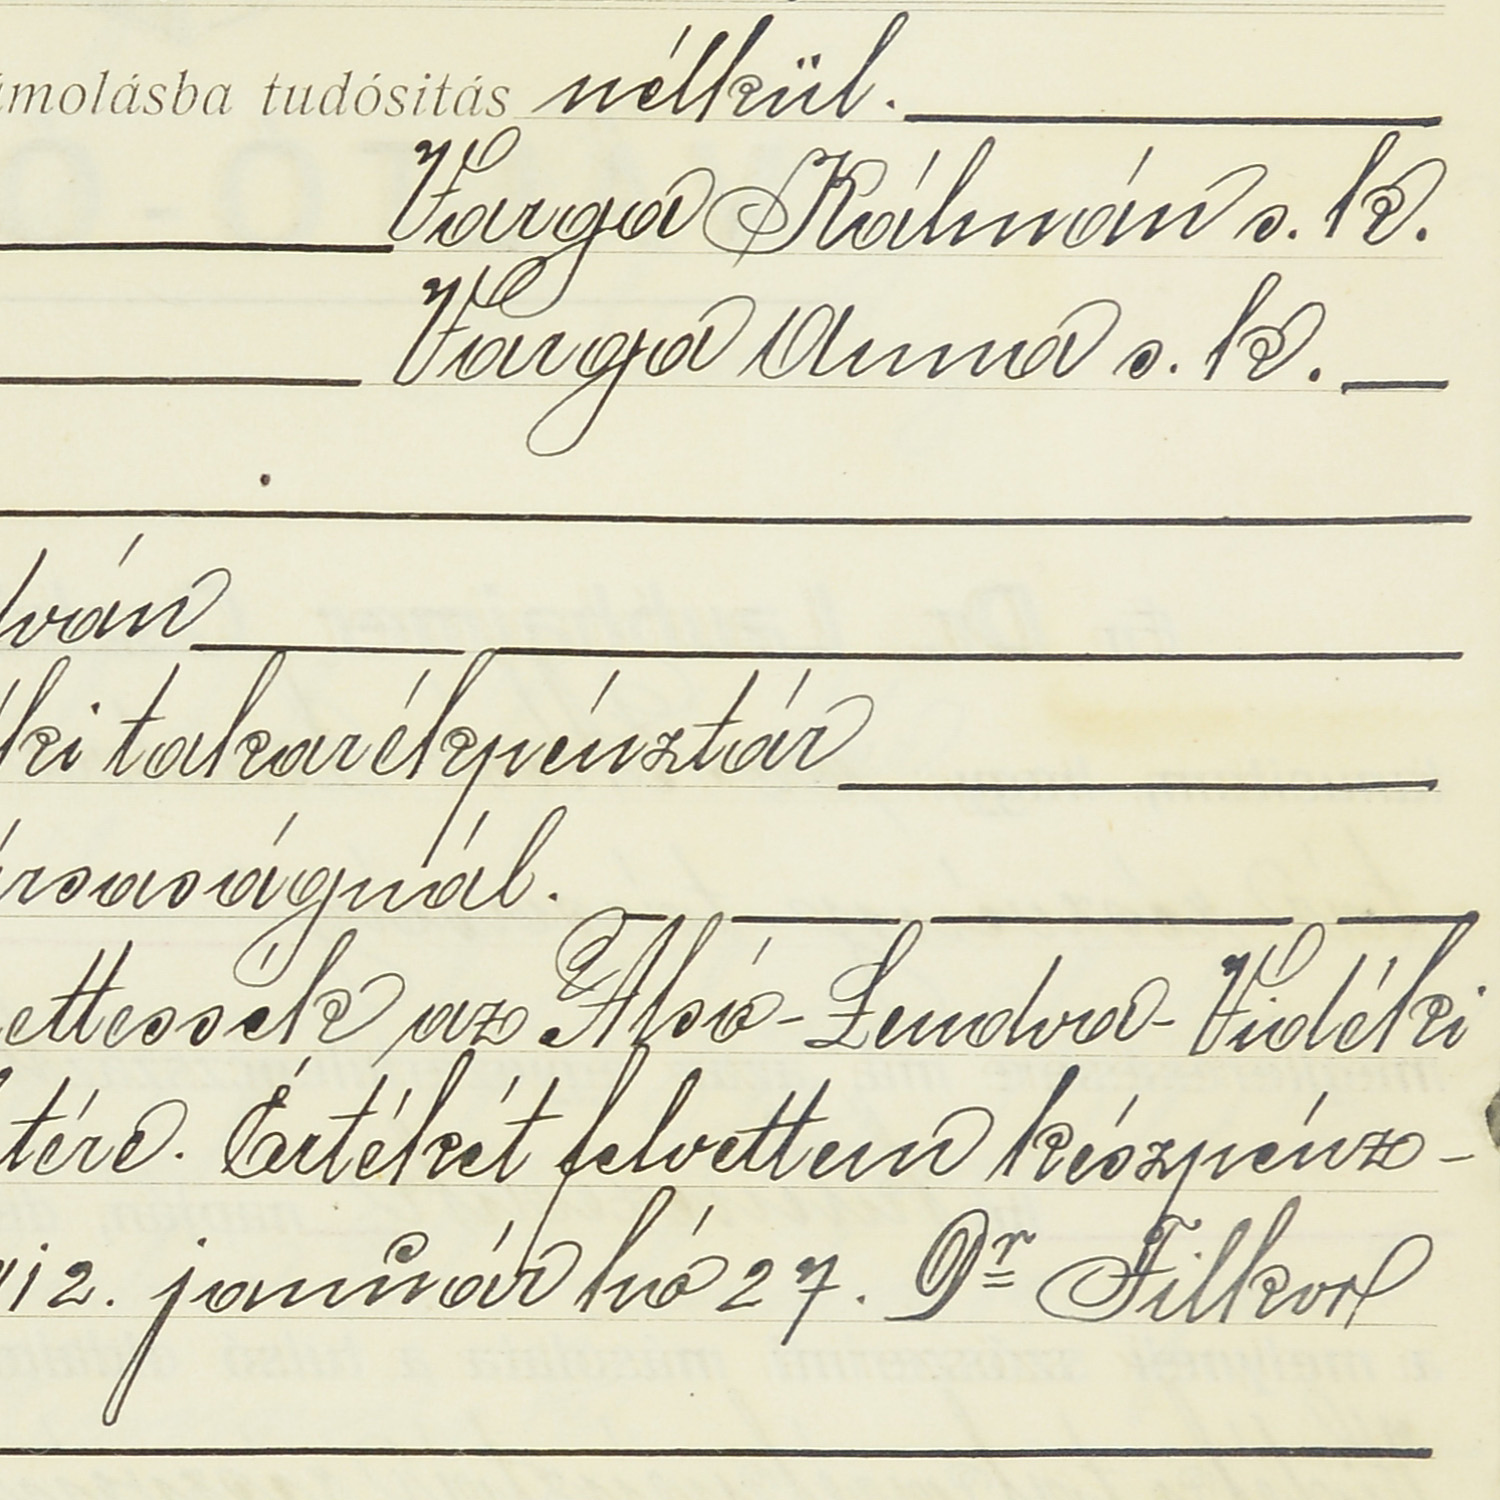 ámolásba tudósitás nélkül.
Varga Kálmán s. k.
Varga Anna s. k.
dván
ki takarékpénztár
ársaságnál.
ettessék az Alsó-Lendva-Vidéki
tére. Értékét felvettem készpénz-
912. január hó 27. Dr Filkor